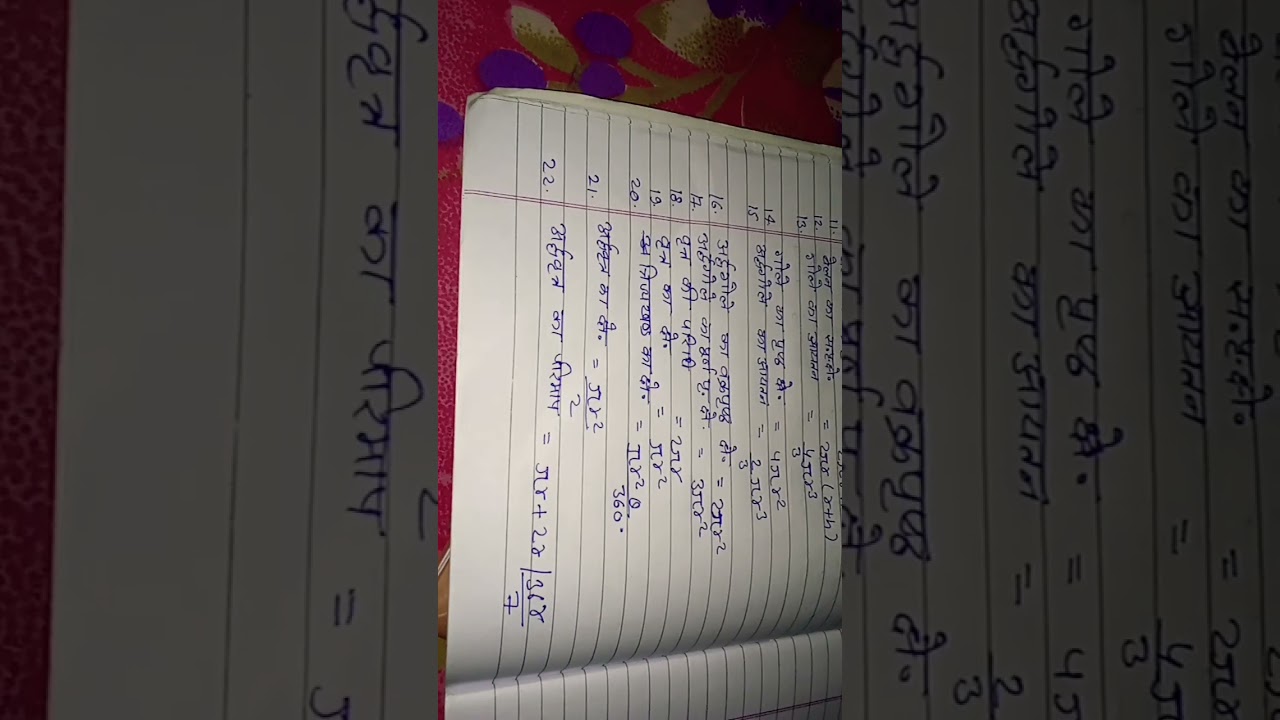 11. बेलन का स०पृ०क्षे० = 2πr (r+h)
12. गोले का आयतन = 4/3 πr³
13.
14. गोले का पृष्ठ क्षे० = 4πr²
15 अर्द्धगोले का आयतन = 2/3 πr³
16. अर्द्धगोले का वक्रपृष्ठ क्षे० = 2πr²
17. अर्द्धगोले का पृ० क्षे. = 3πr²
18. वृत्त की परिधि = 2πr
19. वृत्त का क्षे० = πr²
20. त्रिज्यखंड का क्षे० = πr²θ/360°
21. अर्द्धवृत्त का क्षे० = πr²/2
22. अर्द्धवृत्त का परिमाप = πr+2r | 36r/7